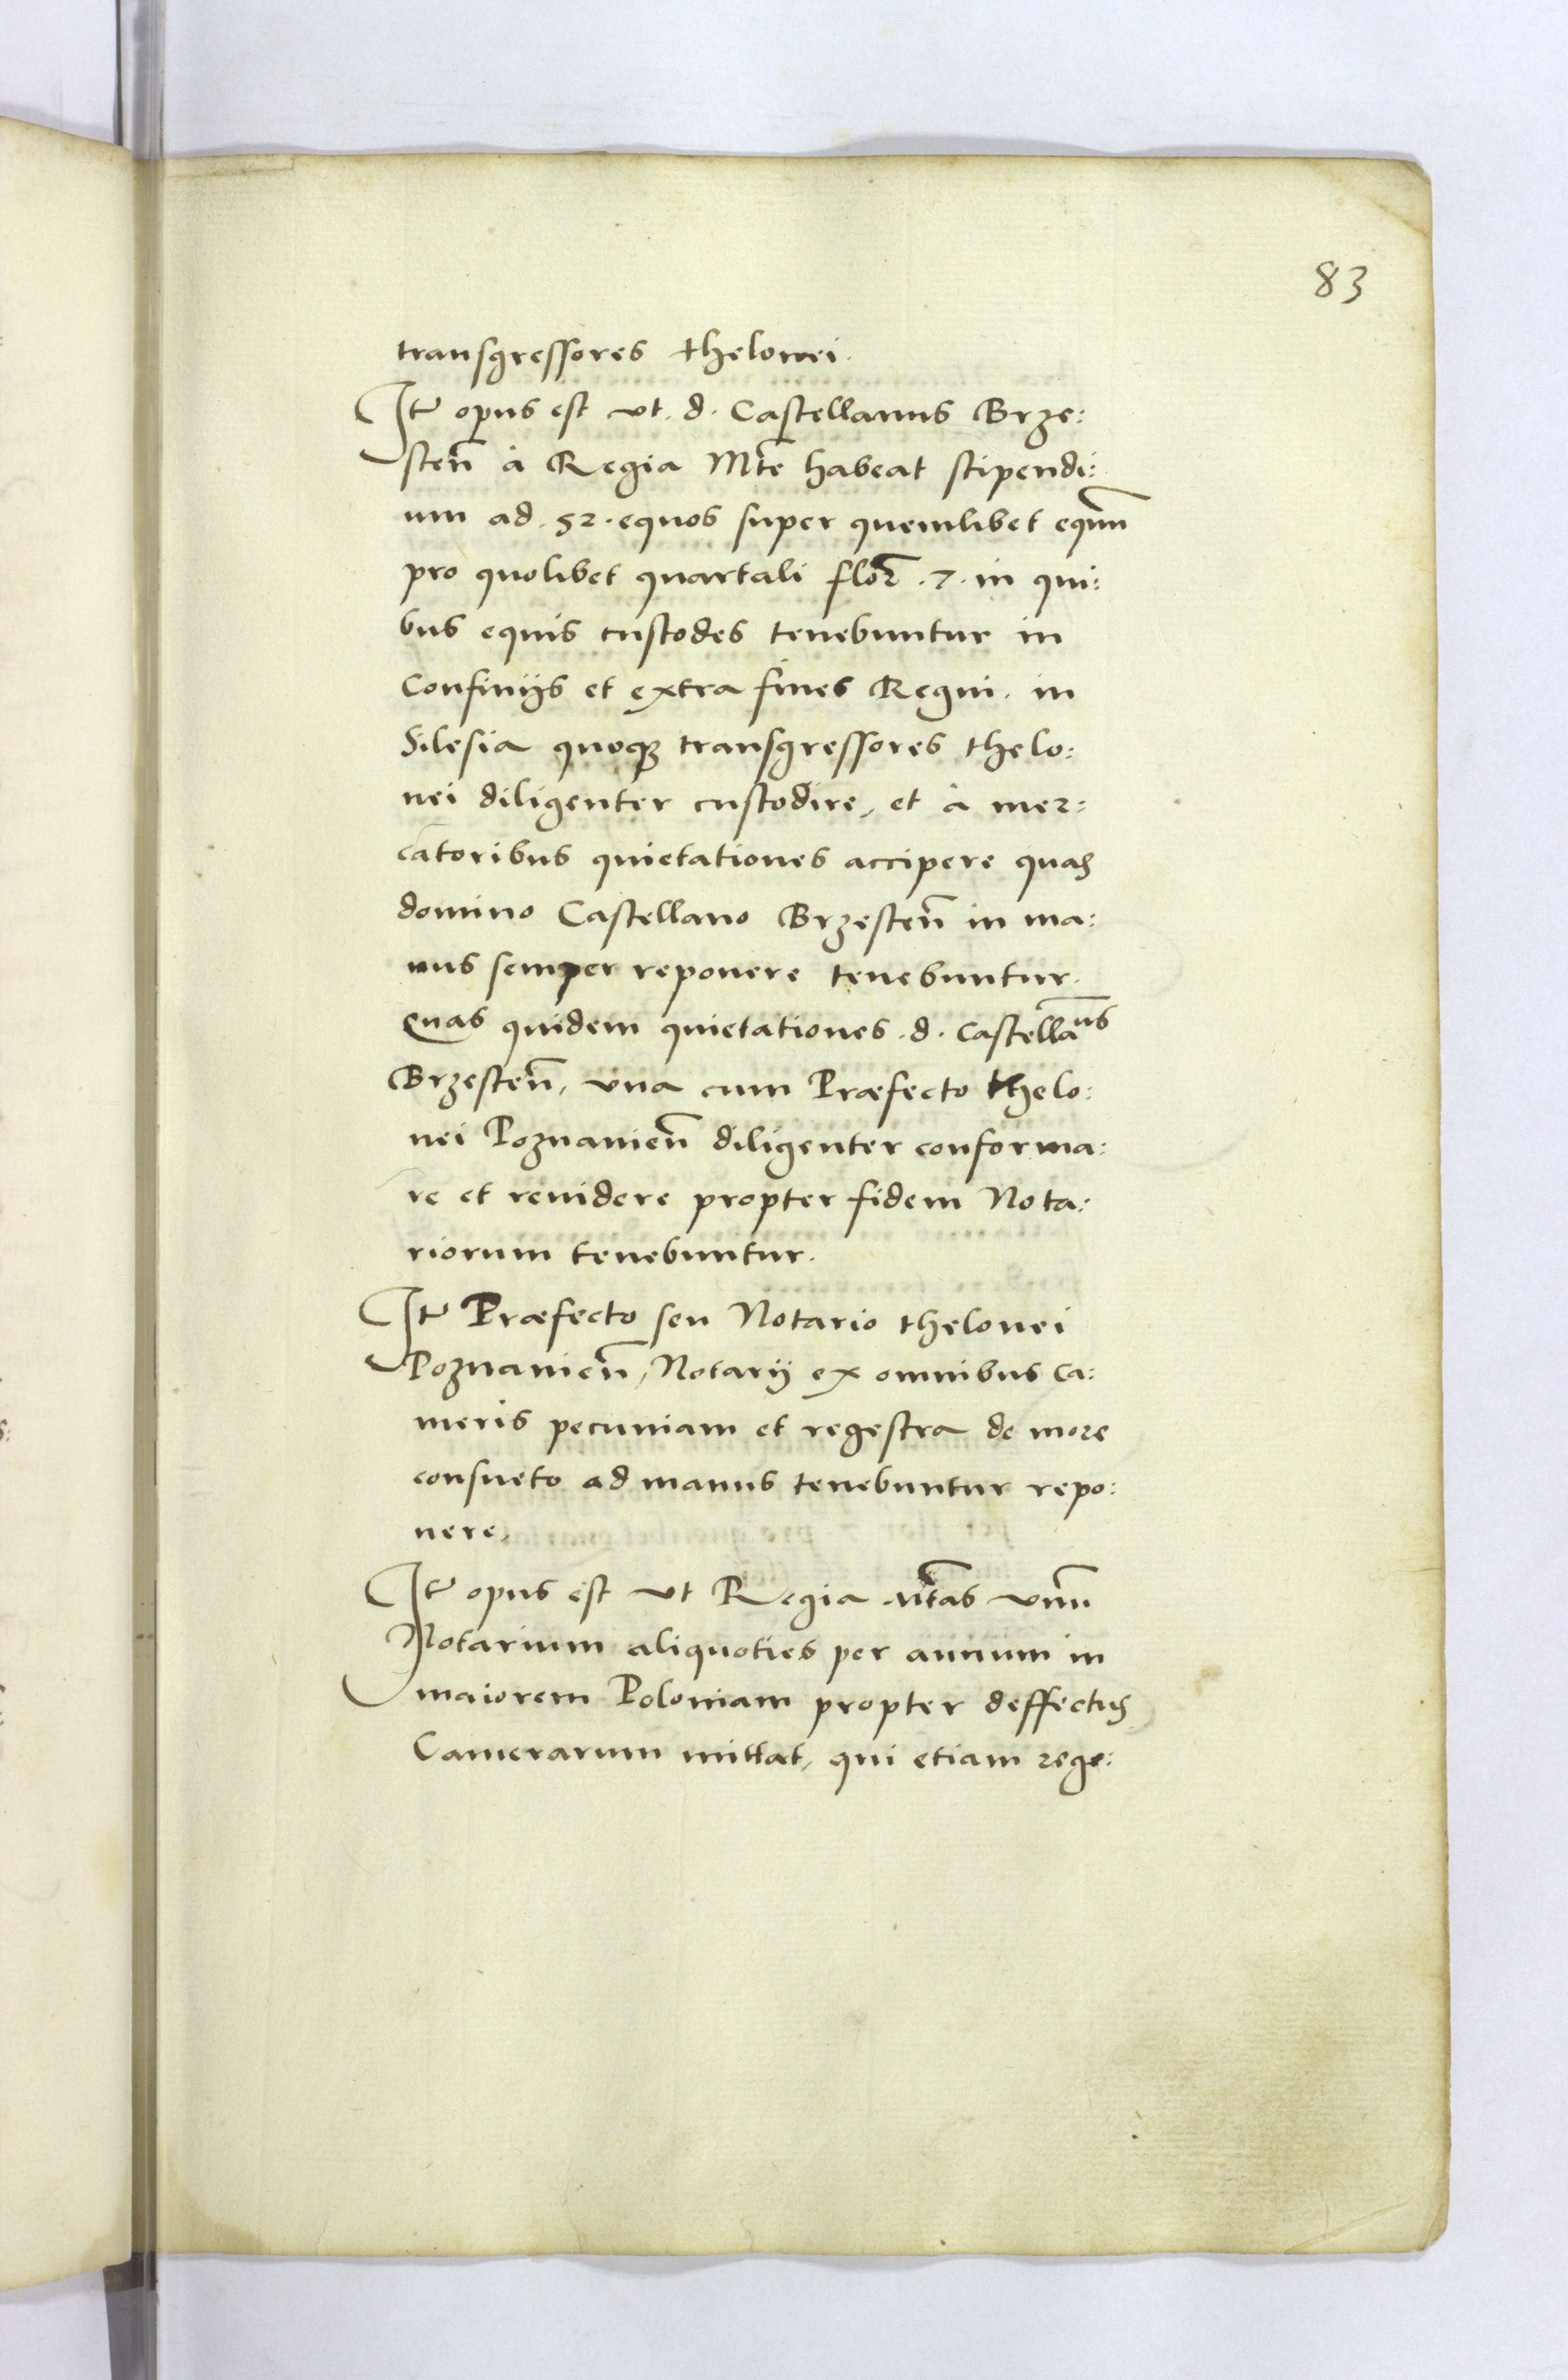 83
transgressores thelonei.
It̃ opus est vt d. Castellanus Brze:
steñ à Regia Mt̃e habeat stipendi:
um ad .52. equos super quemlibet equũ
pro quolibet quartali flor̃ .7. in qui:
bus equis custodes tenebuntur in
Confinijs et extra fines Regni . in
Silesia quoqꝫ transgressores thelo:
nei diligenter custodire, et à mer:
catoribus quietationes accipere quas
domino Castellano Brzesteñ in ma:
nus semper reponere tenebuntur.
Quas quidem quietationes .d. Castellãus
Brzesteñ, vna cum Præfecto thelo:
nei Poznanieñ diligenter conforma:
re et reuidere propter fidem Nota:
riorum tenebuntur.
It̃ Præfecto seu Notario thelonei
Poznanieñ, Notarij ex omnibus Ca:
meris pecuniam et regestra de more
consueto ad manus tenebuntur repo:
nere,
It̃ opus est vt Regia Mt̃as vnũ
Notarium aliquoties per annum in
maiorem Poloniam propter deffectus
Camerarum mittat, qui etiam rege: